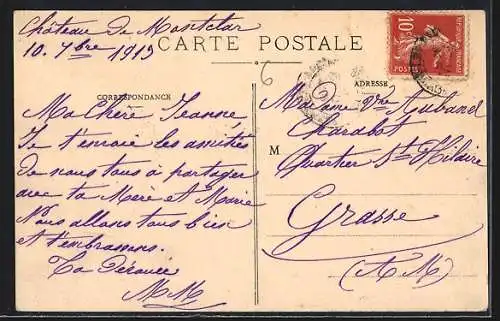 Château de Montclar
10. 7bre 1913
CARTE POSTALE
CORRESPONDANCE
Ma Chère Jeanne,
Je t'envoie les amitiés
de nous tous à partager
avec ta Mère et Marie
Nous allons tous bien
et t'embrassons.
Ta Dévouée
MM
10c
POSTES
6
ADRESSE
Madame Vve Aubanel
Charabot
M
Quartier St Hilaire
Grasse
(A M)